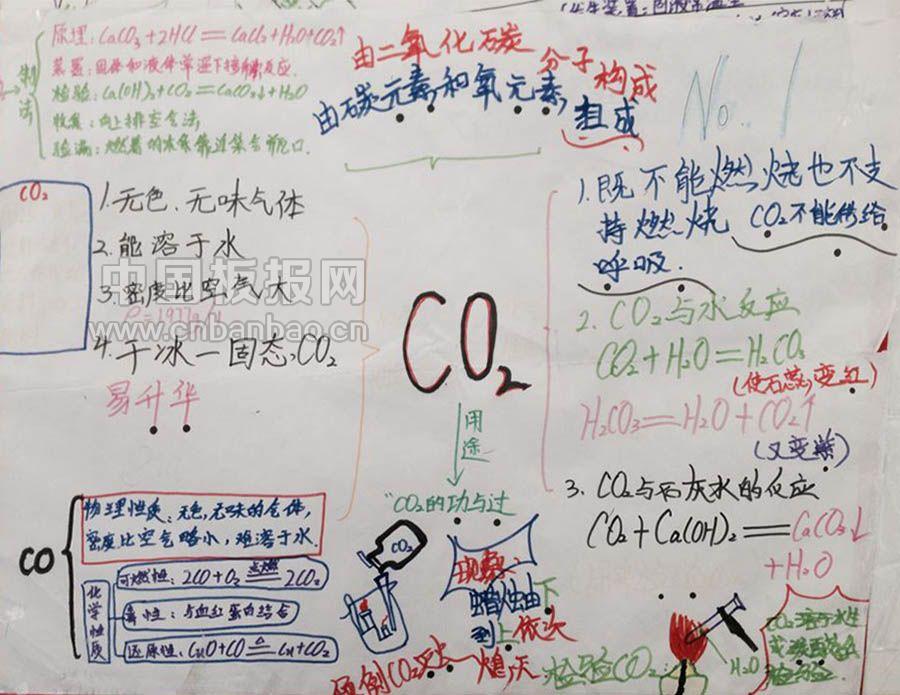 原理:CaCO₃+2HCl═CaCl₂+H₂O+CO₂↑
装置:固体和液体常温下接触反应.
检验:Ca(OH)₂+CO₂═CaCO₃↓+H₂O
收集:向上排空合法;
验满:燃着的木条靠近集合瓶口.
制法
由二氧化碳分子构成
由碳元素和氧元素,组成
No. 1
CO₂
1.无色、无味气体
2.能溶于水
3.密度比空气大
4.干冰—固态CO₂
易升华
中国板报网
www.cnbanbao.cn
CO₂
用途
"CO₂的功与过
1.既不能燃烧也不支
持燃烧 CO₂不能供给
呼吸.
2. CO₂与水反应
CO₂+H₂O=H₂CO₃
(使石蕊变红)
H₂CO₃═H₂O+CO₂↑
(又变紫)
3. CO₂与石灰水的反应
CO₂+Ca(OH)₂═CaCO₃↓
+H₂O
CO
物理性质:无色,无味的合体,
密度比空气略小,难溶于水.
化学性质
可燃性: 2CO+O₂ 点燃 2CO₂
毒性:与血红蛋白结合
还原性: CuO+CO △ Cu+CO₂
CO₂
现象:
蜡烛由下
到上依次
熄灭
检验CO₂:
H₂O
CO₂溶于水生